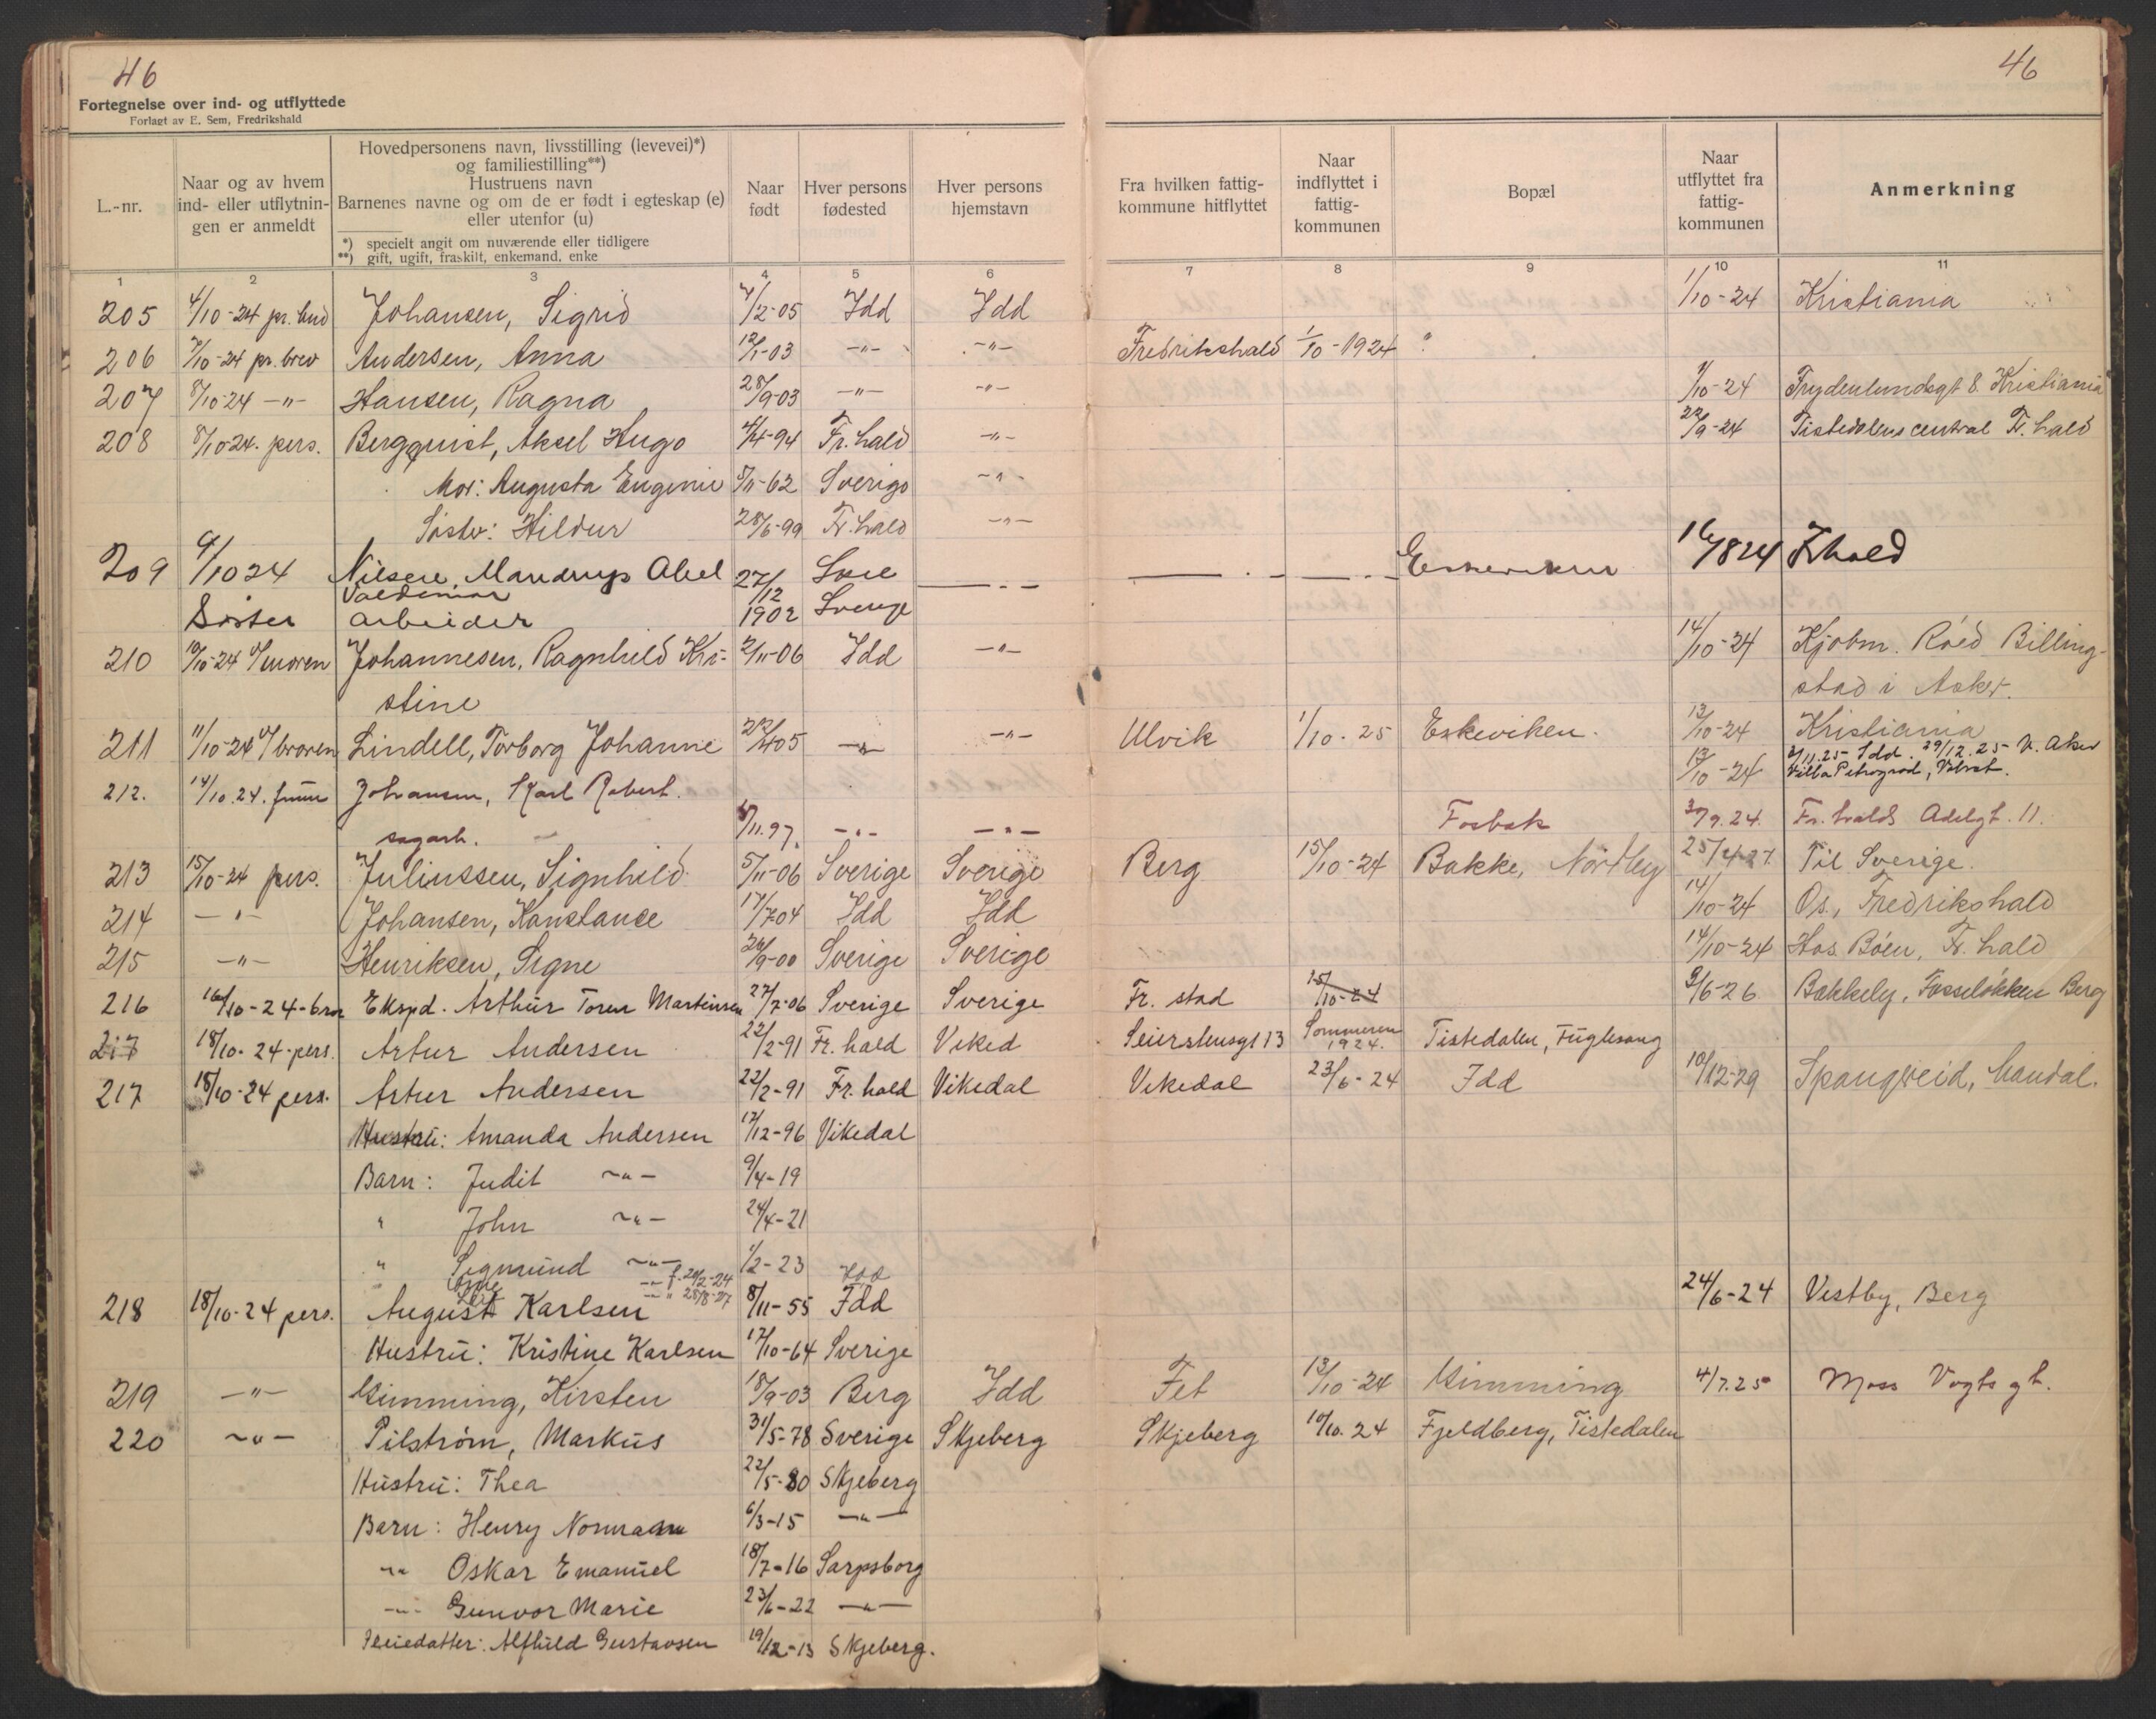 46
46
Fortegnelse over ind- og utflyttede
Forlagt av E. Sem, Fredrikshald
L.-nr.
Naar og av hvem ind- eller utflytnin-gen er anmeldt
Hovedpersonens navn, livsstilling (levevei)*)
og familiestilling**)
Hustruens navn
Barnenes navne og om de er født i egteskap (e)
eller utenfor (u)
*) specielt angit om nuværende eller tidligere
**) gift, ugift, fraskilt, enkemand, enke
Naar født
Hver persons fødested
Hver persons hjemstavn
Fra hvilken fattig-kommune hitflyttet
Naar indflyttet i fattig-kommunen
Bopæl
Naar utflyttet fra fattig-kommunen
Anmerkning
1 2 3 4 5 6 7 8 9 10 11
205 4/10-24 pr. bud Johansen, Sigrid 4/12-05 Idd Idd 1/10-24 Kristiania
206 7/10-24 pr. brev Andersen, Anna 12/1-03 -"- -"- Fredrikshald 1/10-1924 ?
207 8/10-24 -"- Hansen, Ragna 28/9-03 -"- -"- 1/10-24 Frydenlundsgt 8. Kristiania
208 8/10-24. pers. Bergquist, Aksel Hugo 4/4-94 Fr. hald -"- 22/9-24 Tistedalens central Fr. hald
Mor: Augusta Eugenie 5/11-62 Sverige -"-
Søster: Hildur 28/6-99 Fr. hald -"-
209 9/10 24 Nilsen, Mandrup Abel 27/12 16/8 24 Fhald
Valdemar
Søster arbeider 1902 Sverige
210 10/10-24 v/moren Johannesen, Ragnhild Kri- 2/11-06 Idd -"- 14/10-24 Kjøbm. Røed Billing-
stine stad i Asker.
211 11/10-24 v/broren Lindell, Torborg Johanne 22/4 05 -"- -"- Ulvik 1/10.25 Eskeviken. 13/10-24 Kristiania
2/11.25 Idd. 29/12.25 V. Aker
212. 14/10.24. Johansen, Karl Robert. 13/10-24 Villa Petrograd,
sagarb. 5/11.97. -"- -"- Fosbak 30/9.24. Fr. halds Adelgt. 11.
213 15/10-24 pers. Juliussen, Signhild 5/11-06 Sverige Sverige Berg 15/10-24 Bakke, Nordby 25/4-27. Til Sverige.
214 -"- Johansen, Konstance 17/7 04 Idd Idd 14/10-24 Os, Fredrikshald
215 -"- Henriksen, Signe 26/9-00 Sverige Sverige 14/10-24 Hos Bøen, Fr. hald
216 16/10-24-bror Ekspd. Arthur Toren Martinsen 27/7-06 Sverige Sverige Fr. stad 15/10-24 9/6-26 Bakkely, Fosseløkken Berg
217 18/10-24-pers. Artur Andersen 22/2-91 Fr. hald Viked Seierstensgt 13 Sommeren 1924. Tistedalen, Fuglesang
217 18/10-24 pers. Artur Andersen 22/2-91 Fr. hald Vikedal Vikedal 23/6-24 Idd 10/12-29 Spangereid, Mandal.
Hustru: Amanda Andersen 17/12-96 Vikedal
Barn: Judit -"- 9/4-19
" John -"- 24/4-21
" Sigmund -"- 1/2-23
-"- f. 20/2-24 Idd
-"- " 28/8-27
218 18/10-24 pers. August Karlsen 8/11-55 Idd 24/6-24 Vestby, Berg
Hustru: Kristine Karlsen 17/10-64 Sverige
219 -"- Gimming, Kirsten 18/9-03 Berg Idd Fet 13/10-24 Gimming 4/7.25 Moss Vogts gt.
220 -"- Pilstrøm, Markus 31/5-78 Sverige Skjeberg Skjeberg 10/10.24 Fjeldberg, Tistedalen
Hustru: Thea 22/5-80 Skjeberg
Barn: Henry Normann 6/3-15 -"-
-"- Oskar Emanuel 18/7-16 Sarpsborg
-"- Gunvor Marie 23/6-22 -"-
Pleiedatter: Alfhild Gustavsen 19/12-13 Skjeberg.